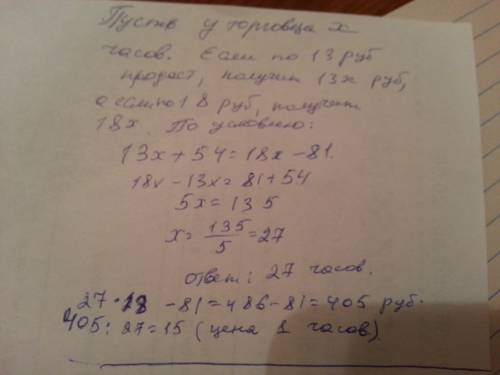 Пусть у торговца x
часов. Если по 13 руб
продаст, получит 13x руб,
а если по 18 руб, получит
18x. По условию:
13x + 54 = 18x - 81.
18x - 13x = 81 + 54
5x = 135
x = 135/5 = 27
ответ: 27 часов.
27 * 18 - 81 = 486 - 81 = 405 руб.
405 : 27 = 15 (цена 1 часов)